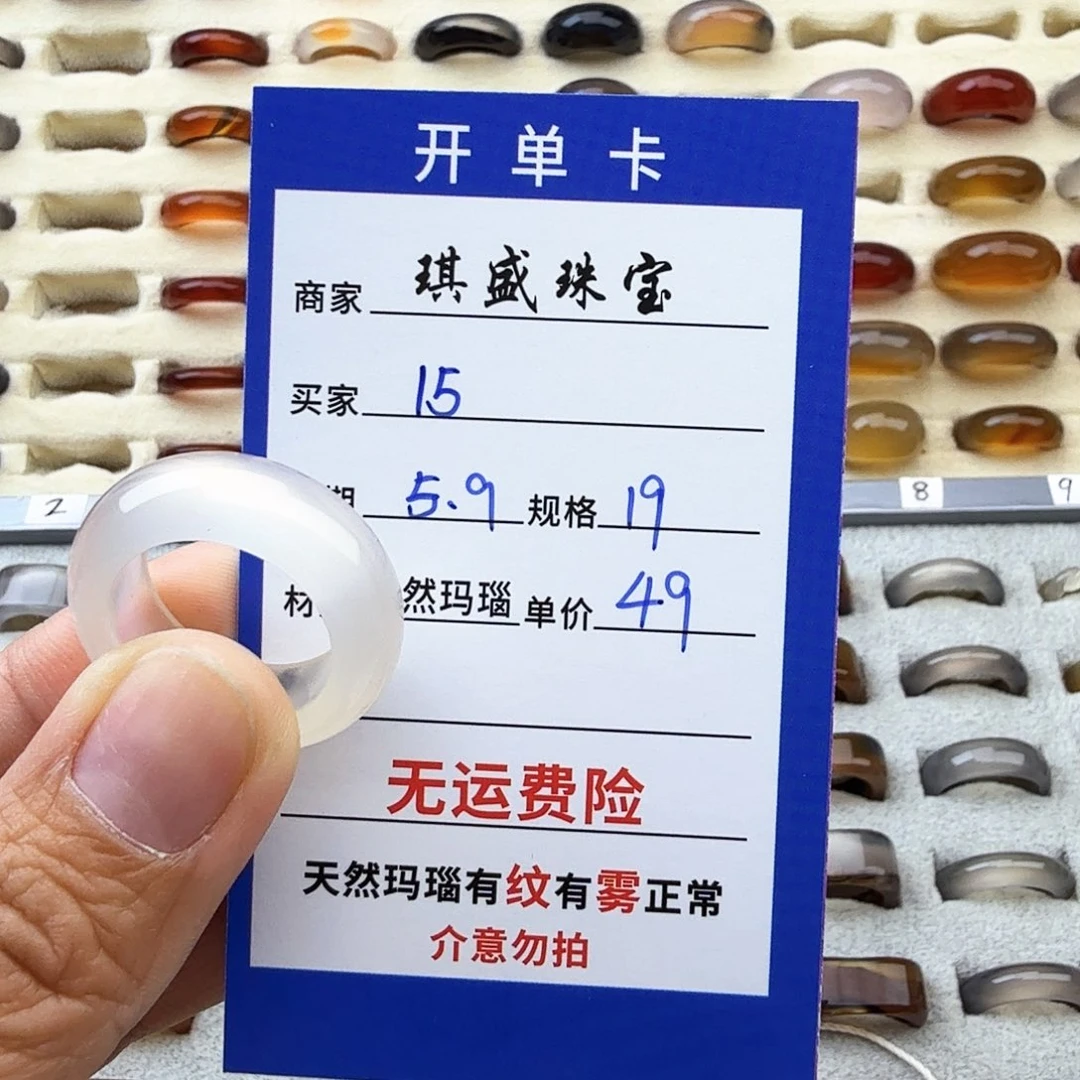 开单卡
商家 琪盛珠宝
买家 15
期 5.9 规格 19
材 然玛瑙 单价 49
无运费险
天然玛瑙有纹有雾正常
介意勿拍
2
8
9